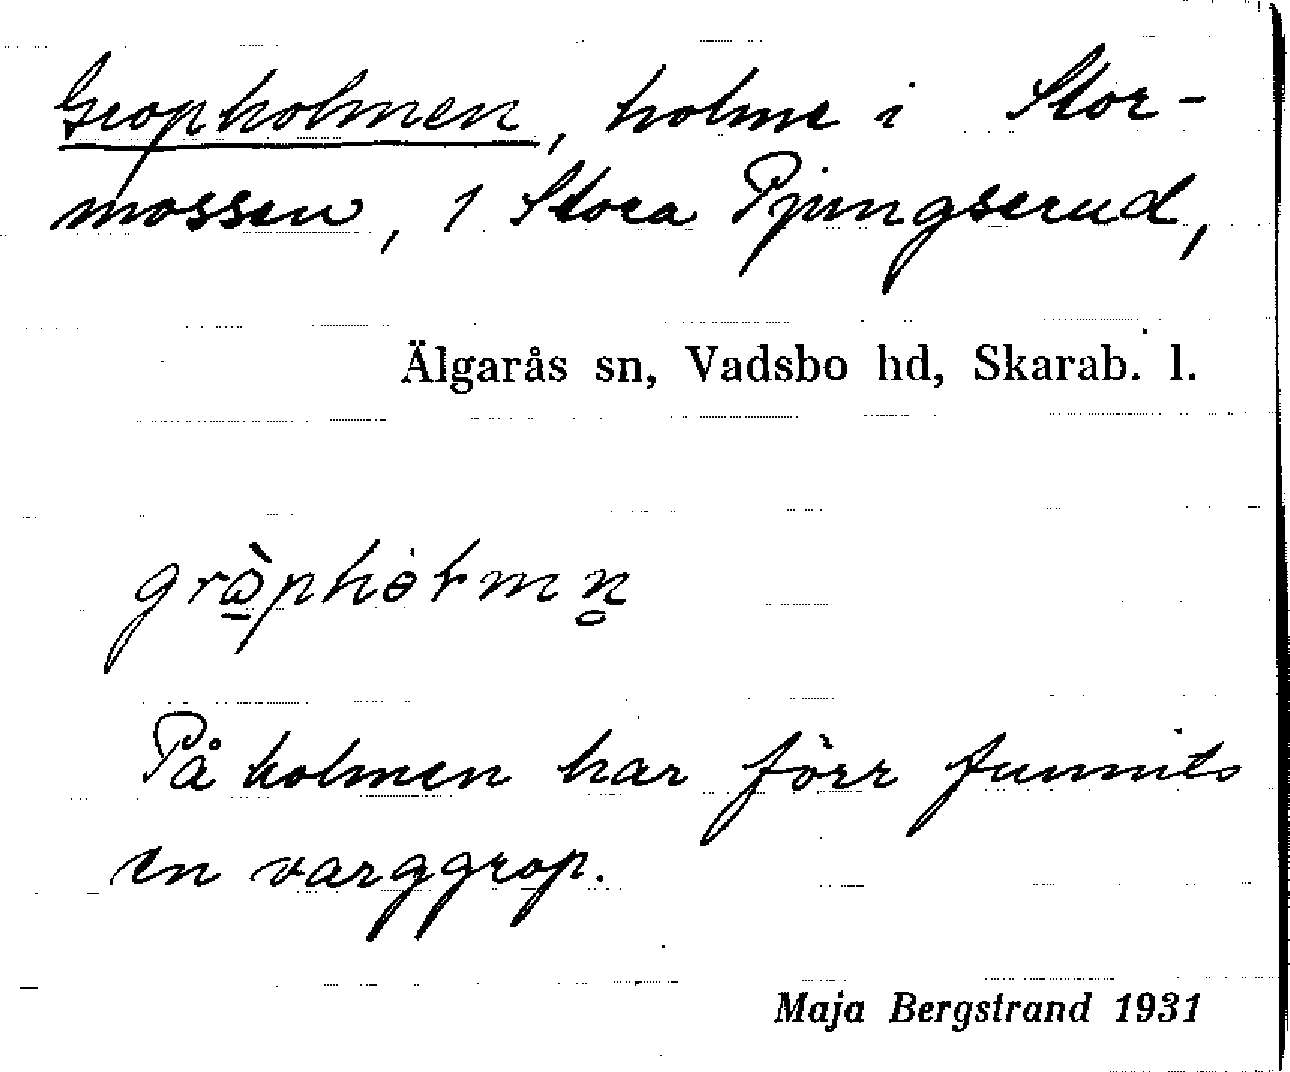 Gropholmen, holme i Stor-
mossen, 1 Stora Pjungserud,
Älgarås sn, Vadsbo hd, Skarab. l.
På holmen har förr funnits
en varggrop.
Maja Bergstrand 1931